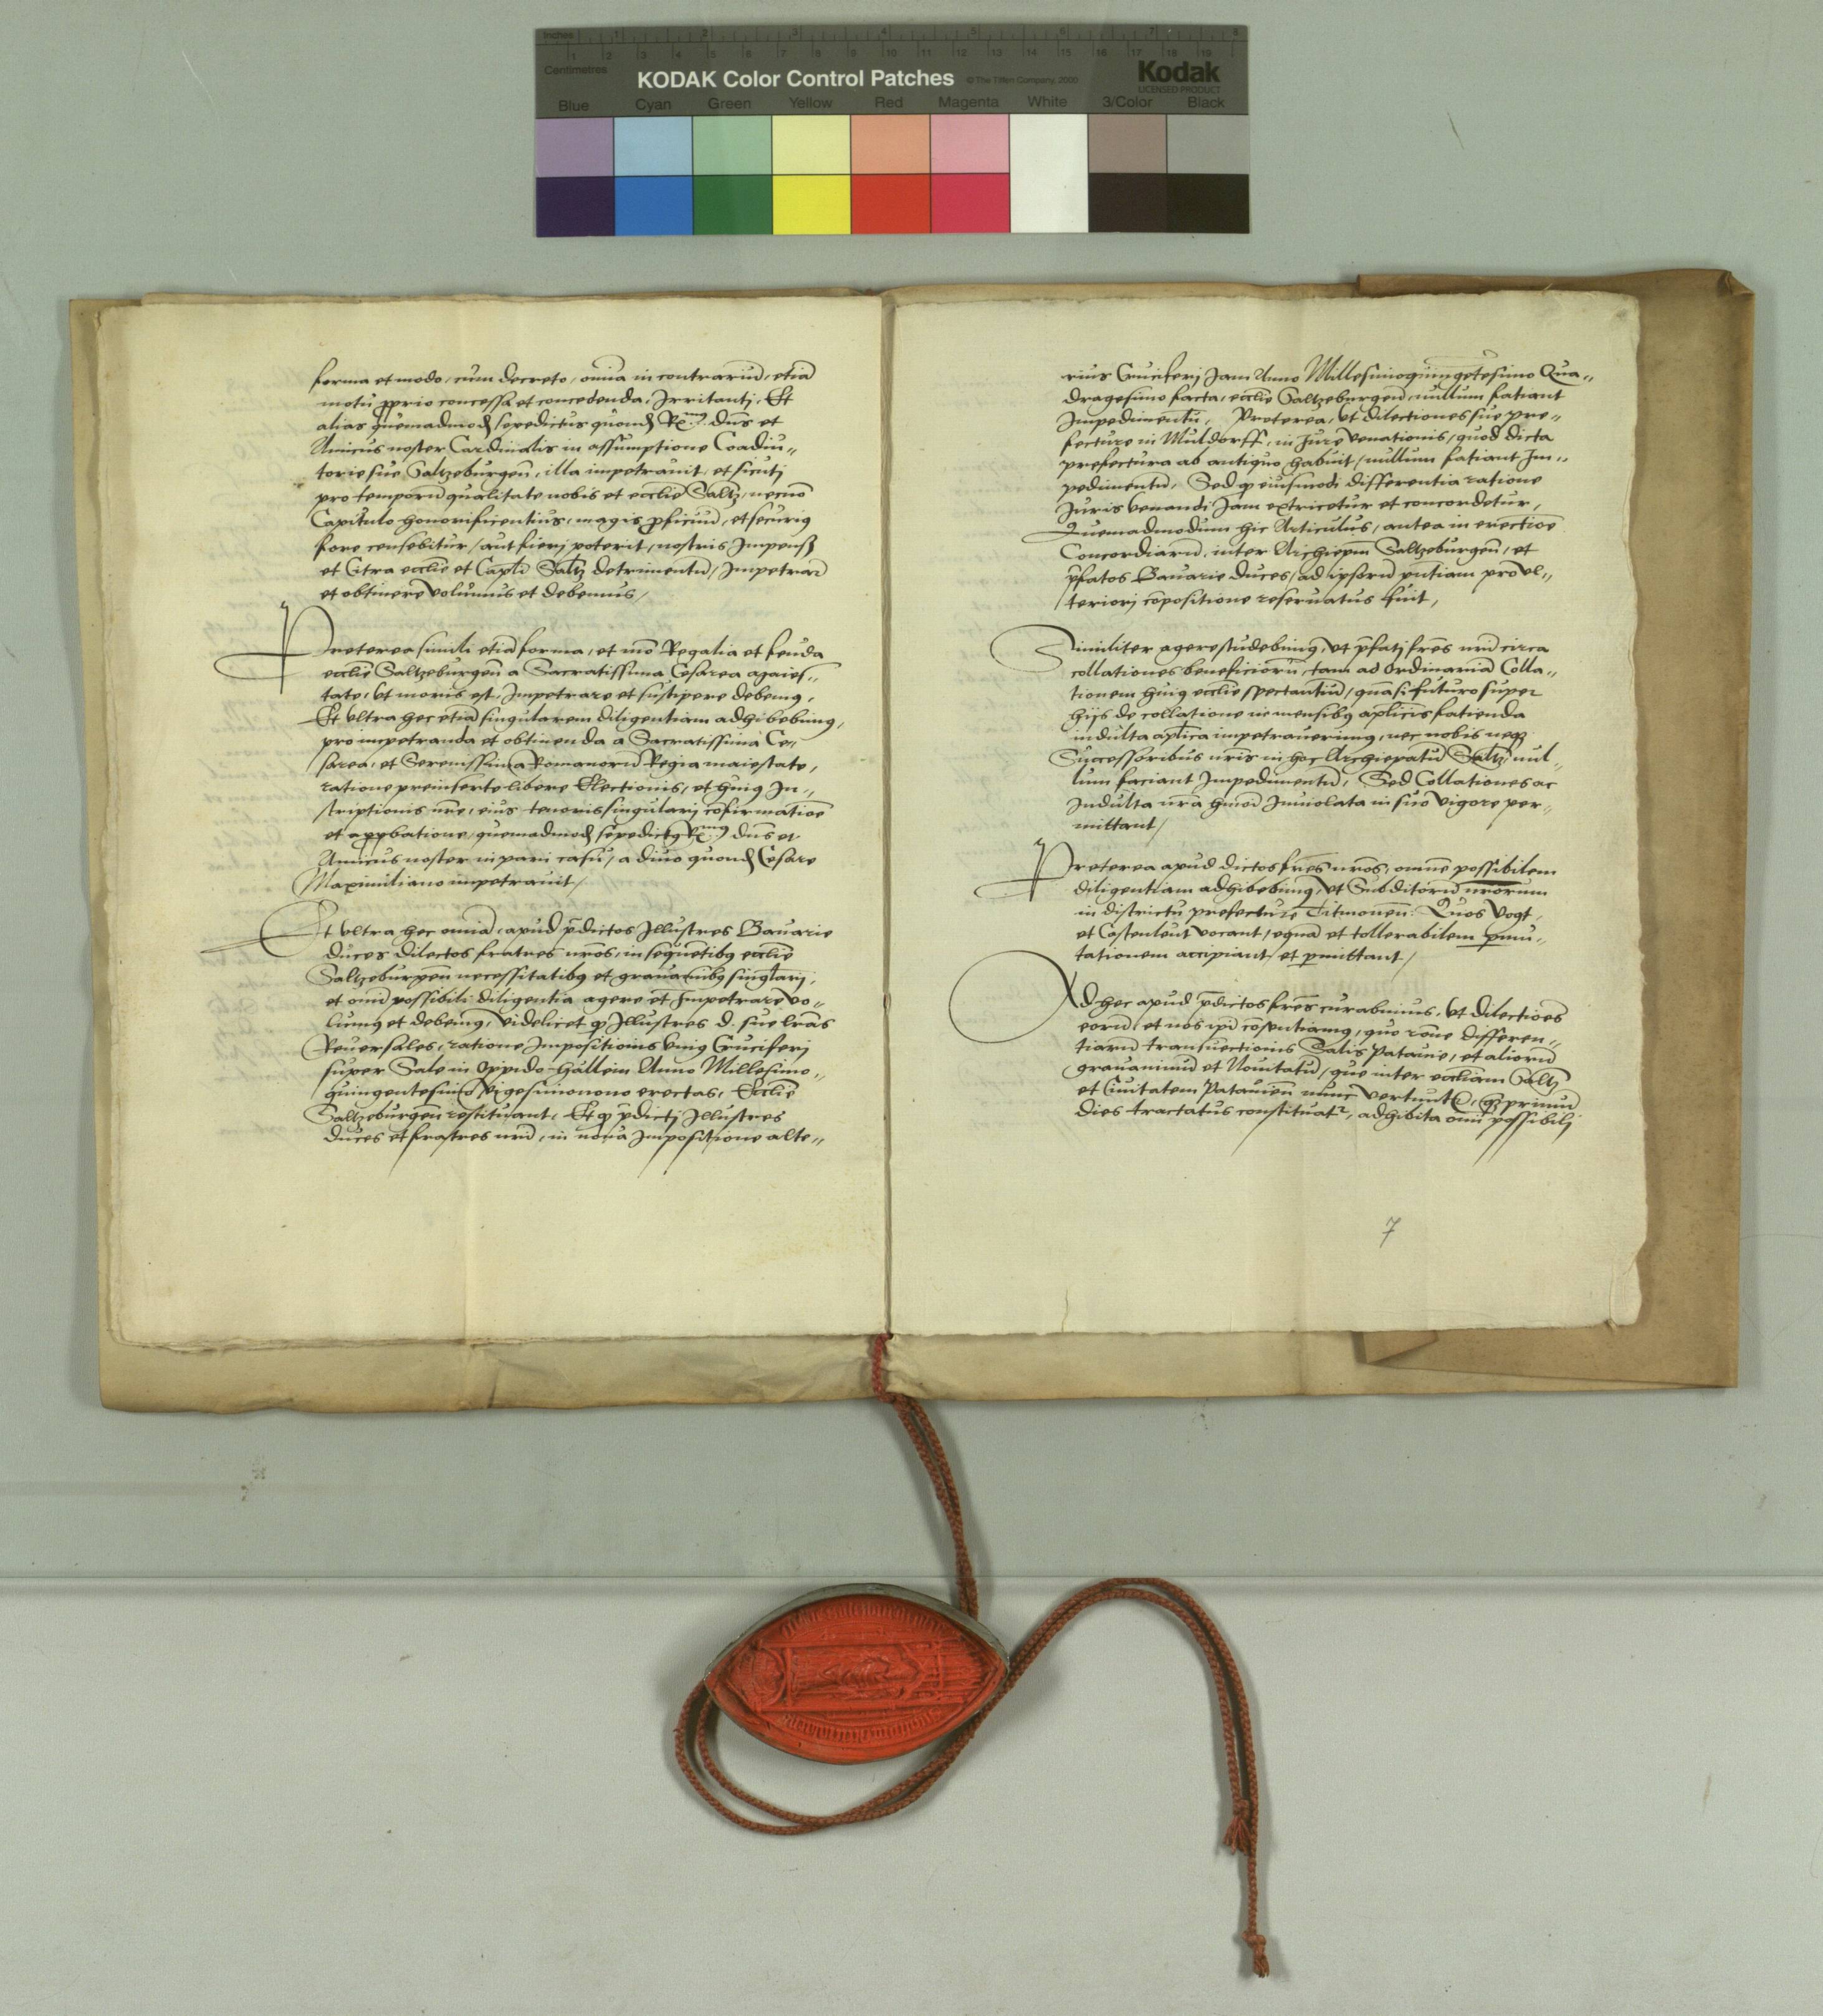 Inches 1 2 3 4 5 6 7 8
Centimetres 1 2 3 4 5 6 7 8 9 10 11 12 13 14 15 16 17 18 19
KODAK Color Control Patches © The Tiffen Company, 2000 Kodak
LICENSED PRODUCT
Blue Cyan Green Yellow Red Magenta White 3/Color Black
forma et modo, cum decreto, om̄ia in contrariu̅, etia̅
motu ꝓprio concessa et concedenda, Irritantj, Et
alias quemadmod̅ sepedictus quond̅ R.mus dn̄s et
Amicus noster Cardinalis in assumptione Coadiu„
torie sue Saltzeburgen̄, illa impetrauit, et sicutj
pro temporu̅ qualitate nobis et eccl̄ie Saltz, necno̅
Capitulo honorificentius, magis ꝓficuu̅, et securiꝰ
fore censebitur / aut fierj poterit, nostris Impens̄
et Citra eccl̄ie et Capl̄i Saltz detrimentu̅, Impetrar̄
et obtinere volumus et debemus,
Preterea simili etia̅ forma, et mo̅ Regalia et feuda
eccl̄ie Saltzeburgen̄ a Sacratissima Cesarea maies„
tate, vt moris est, Impetrare et suscipere debemꝰ,
Et vltra hec etia̅ singularem diligentiam adhibebimꝰ,
pro impetranda et obtinenda a Sacratissima Ce„
sarea, et Serenissima Romanoru̅ Regia maiestate,
ratione preinserte libere Electionis, et huiꝰ In„
scriptionis nr̄e, eius tenoris singularj co̅firmatioe̅
et approbatione, quemadmod̅ sepedictꝰ R.mus dn̄s et
Amicus noster in pari casu, a diuo quond̅ Cesare
Maximiliano impetrauit /
Et vltra hec omnia, apud p̄dictos Illustres Bauarie
duces dilectos fratres nr̄os, in seque̅tibꝰ eccl̄ie
Saltzeburgen̄ necessitatibꝰ et grauaminibꝰ singularj,
et omi̅ possibili diligentia agere et Impetrare vo„
lumꝰ et debemꝰ, Videlicet ꝙ Illustres d. sue lr̄as
Reuersales, ratione Impositionis vniꝰ Cruciferj
super Sale in Oppido Hallein Anno Millesimo„
quingentesimo Vigesimonono erectas, Eccl̄ie
Saltzeburgen̄ restituant, Et ꝙ p̄dictj Illustres
duces et fratres nr̄i, in noua Impositione alte„
rius Cruciferj Jam Anno Millesimoquinge̅tesimo Qua„
dragesimo facta, eccl̄ie Saltzeburgen̄, nullum fatiant
Impedimentu̅, Preterea, vt dilectiones sue pre„
fecture in Muldorff, in Jure venationis, quod dicta
prefectura ab antiquo habuit, nullum fatiant Im„
pedimentu̅, Sed ꝙ eiusmodi differentia ratione
Juris venandi Jam extricetur et concordetur,
Quemadmodum hic Articulus, antea in erectioe̅
Concordiaru̅, inter Archiep̄m Saltzeburgen̄, et
p̄fatos Bauarie duces, ad ipsoru̅ pn̄tiam pro vl„
teriorj co̅positione reseruatus fuit,
Similiter agere studebimꝰ, vt p̄fatj fr̄es nr̄i circa
collationes beneficioru̅, tam ad Ordinaria̅ Colla„
tionem huiꝰ eccl̄ie spectantiu̅, quasi futuro super
hijs de collatione in mensibꝰ ap̄licis fatienda
indulta ap̄lica impetrauerimꝰ, nec nobis neqꝫ
Successoribus nr̄is in hoc Archiepatu̅ Saltz, nul„
lum faciant Impedimentu̅, Sed Collationes ac
Indulta nr̄a hm̄oi Inuiolata in suo vigore per„
mittant /
Preterea apud dictos fr̄es nr̄os, omne̅ possibilem
diligentiam adhibebimꝰ, vt Subditoru̅ nrorum
in districtu prefecture Titmonen̄: Quos Vogt,
et Castenleut vocant, equa̅ et tollerabilem pmu„
tationem accipiant, et pmittant /
Ad hec apud p̄dictos fr̄es curabimus, vt dilectioe̅s
eoru̅ et nos ip̄i co̅sentiamꝰ, quo ro̅ne differen„
tiaru̅ transuectionis Salis Patauie, et alioru̅
grauaminu̅ et Nouitatu̅, que inter eccl̄iam Saltz
et Ciuitatem Patauien̄ nunc vertuntur, ꝙ primu̅
dies tractatus constituatr, adhibita omi̅ possibilj
7